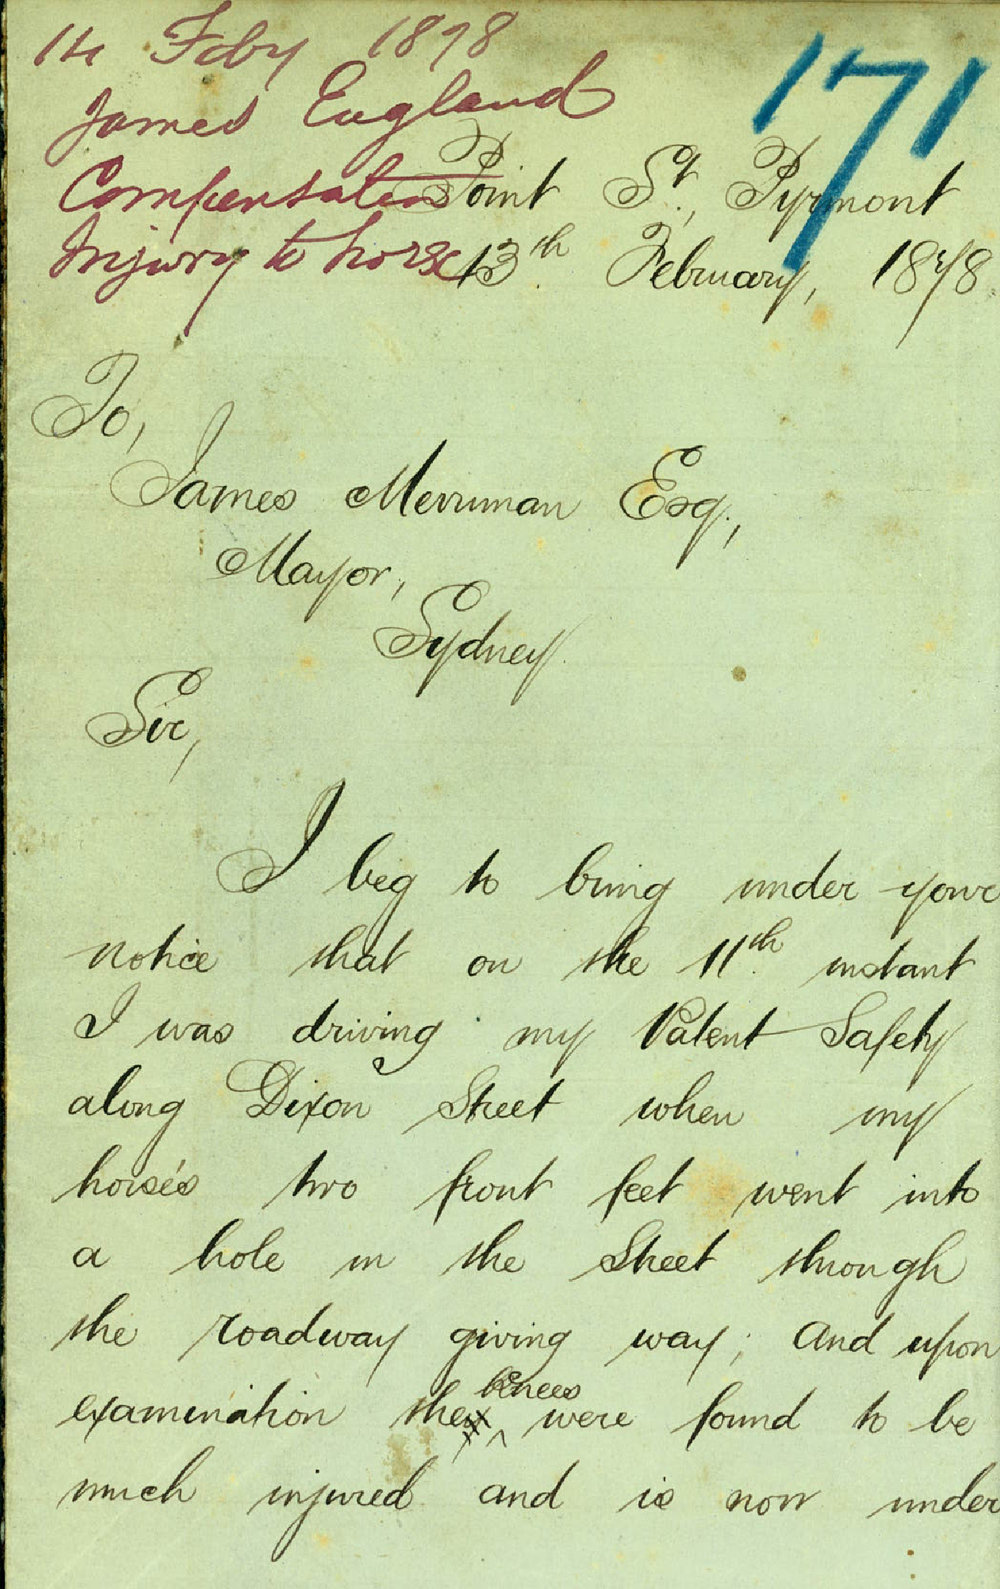 14 Feby 1878
171
James England
Compensation
Injury to horse
Point St., Pyrmont
13th. February, 1878
To,
James Merriman Esq.,
Mayor,
Sydney.
Sir,
I beg to bring under your
notice that on the 11th. instant
I was driving my Patent Safety
along Dixon Street when my
horse's two front feet went into
a hole in the Street through
the roadway giving way; and upon
examination the knees were found to be
much injured and is now under